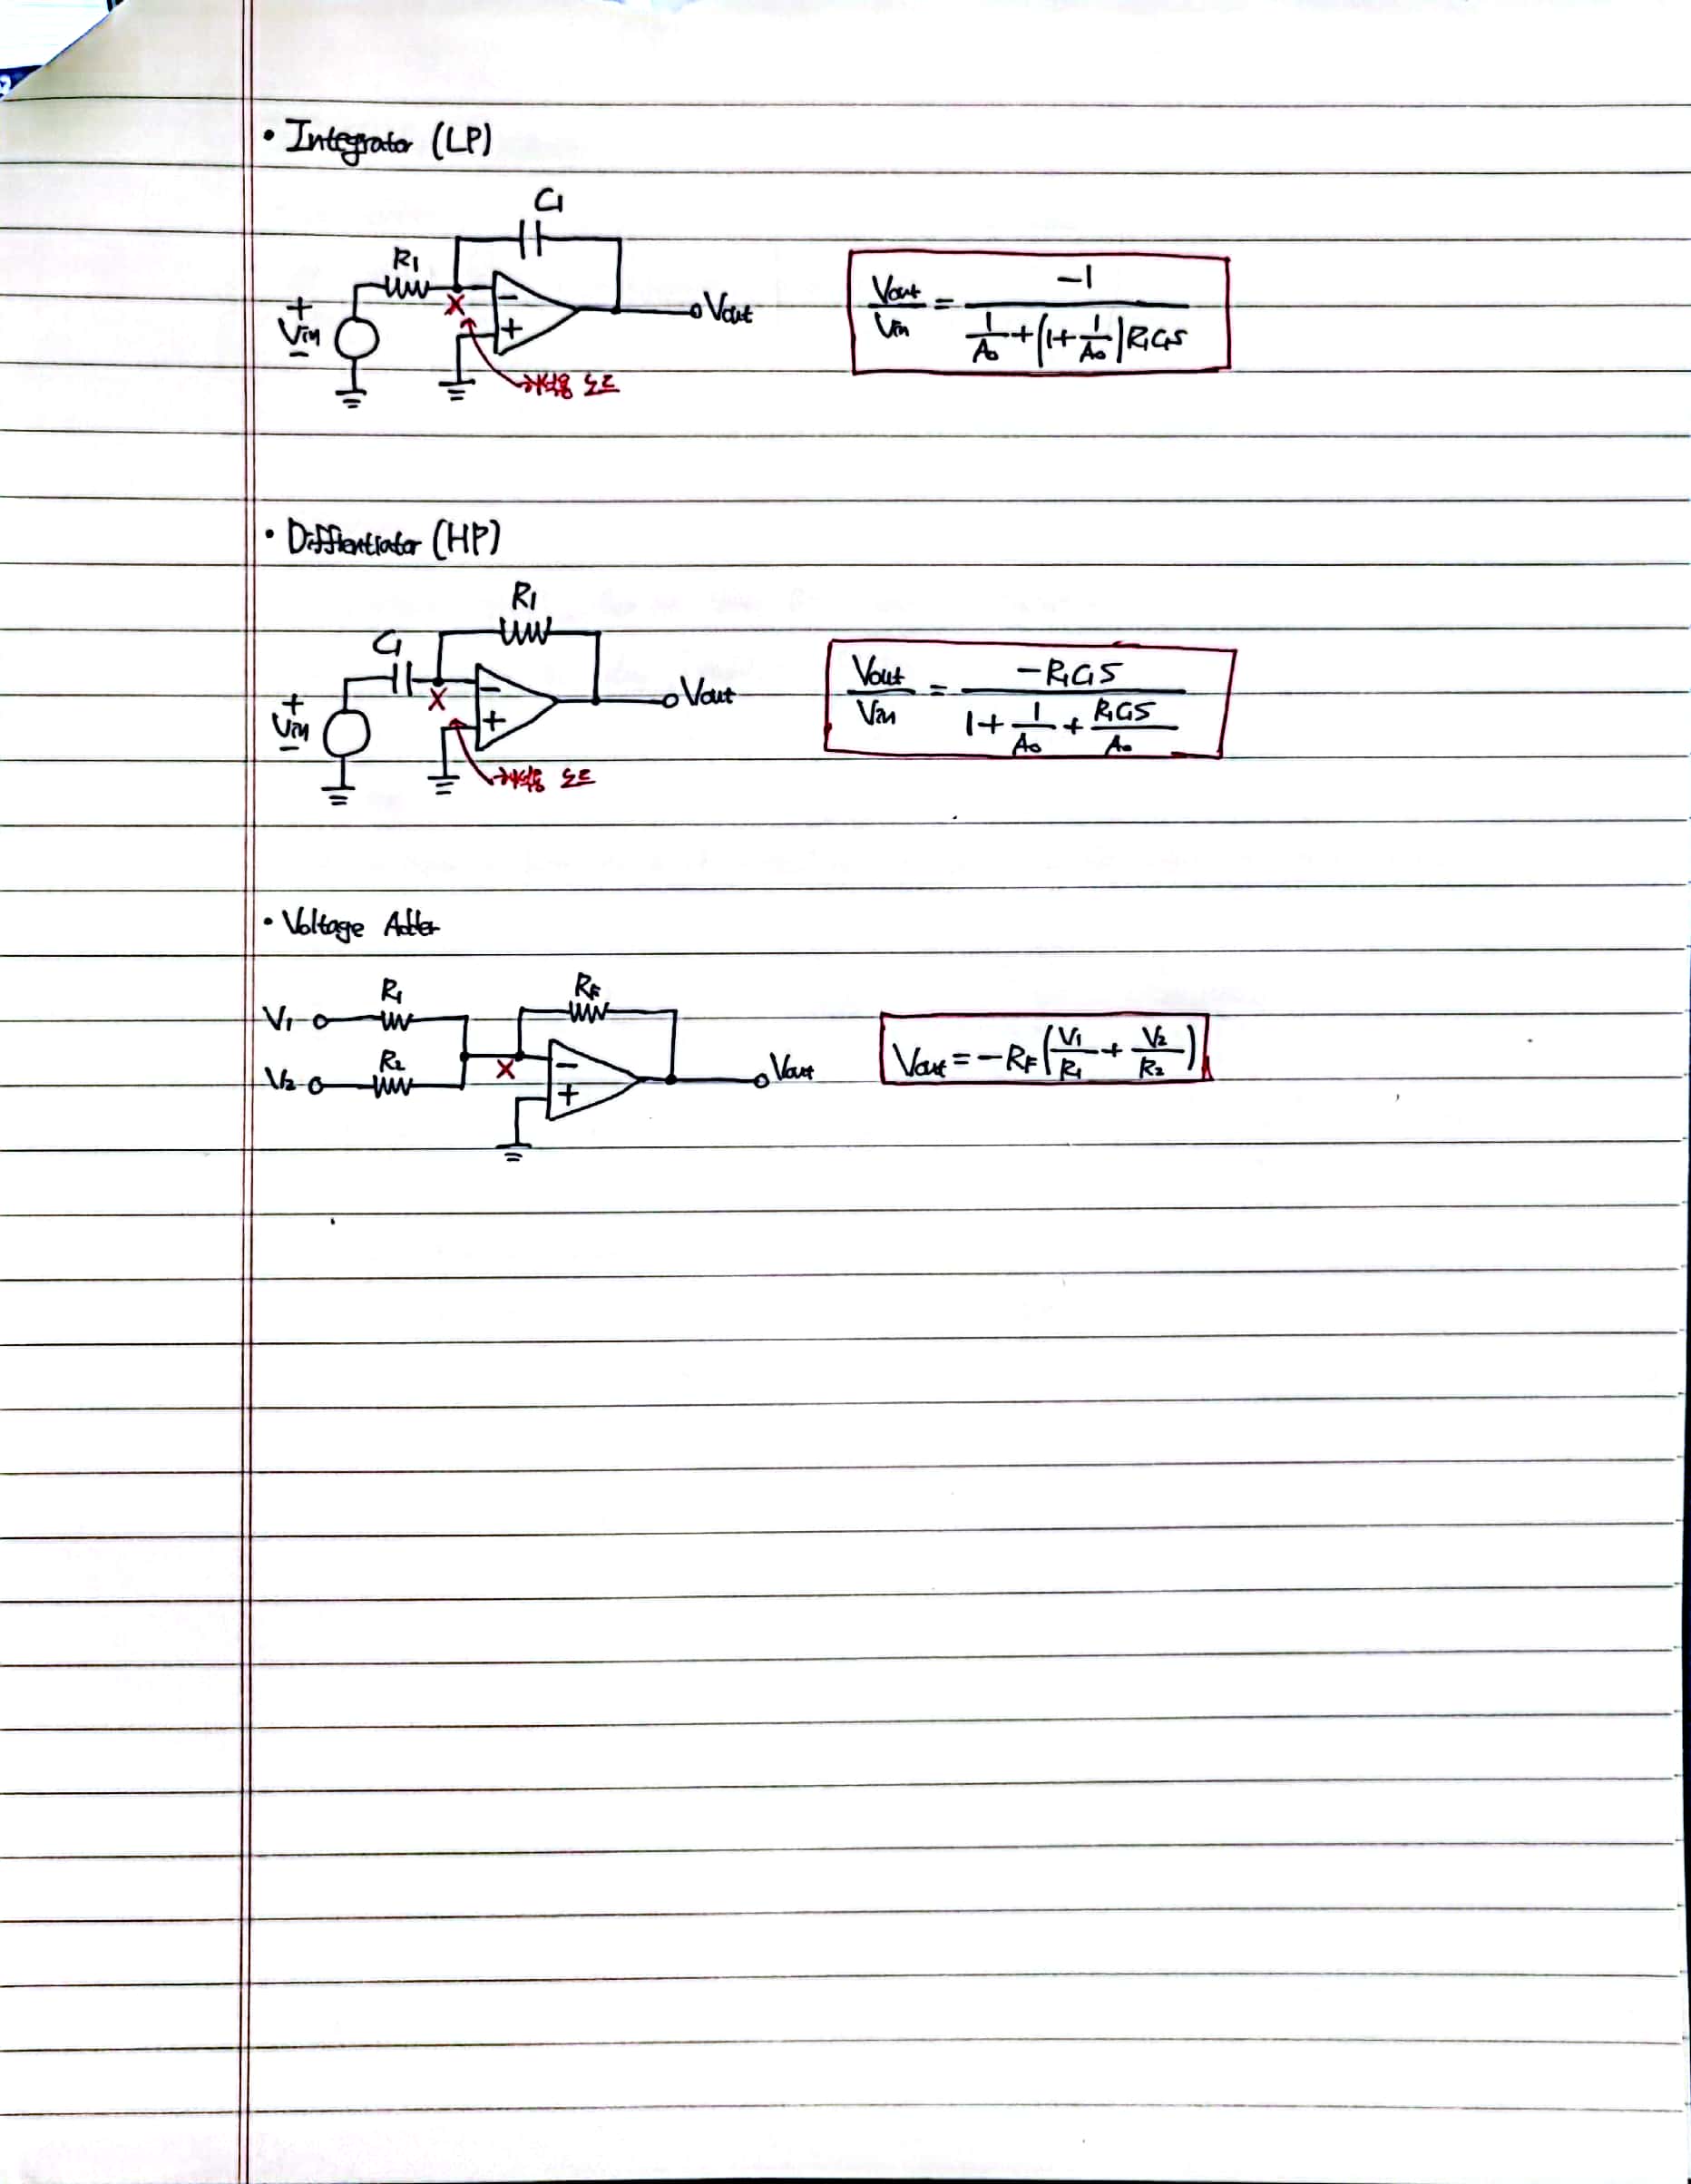 • Integrator (LP)
C₁
R₁
+
Vin
−
X
−
+
Vout
노드
Vout/Vin = -1 / (1/A₀ + (1 + 1/A₀) R₁C₁S)
• Diffientiator (HP)
R₁
C₁
+
Vin
−
X
−
+
Vout
노드
Vout/Vin = -R₁C₁S / (1 + 1/A₀ + R₁C₁S/A₀)
• Voltage Adder
R₁
RF
V₁
R₂
V₂
X
−
+
Vout
Vout = -RF (V₁/R₁ + V₂/R₂)